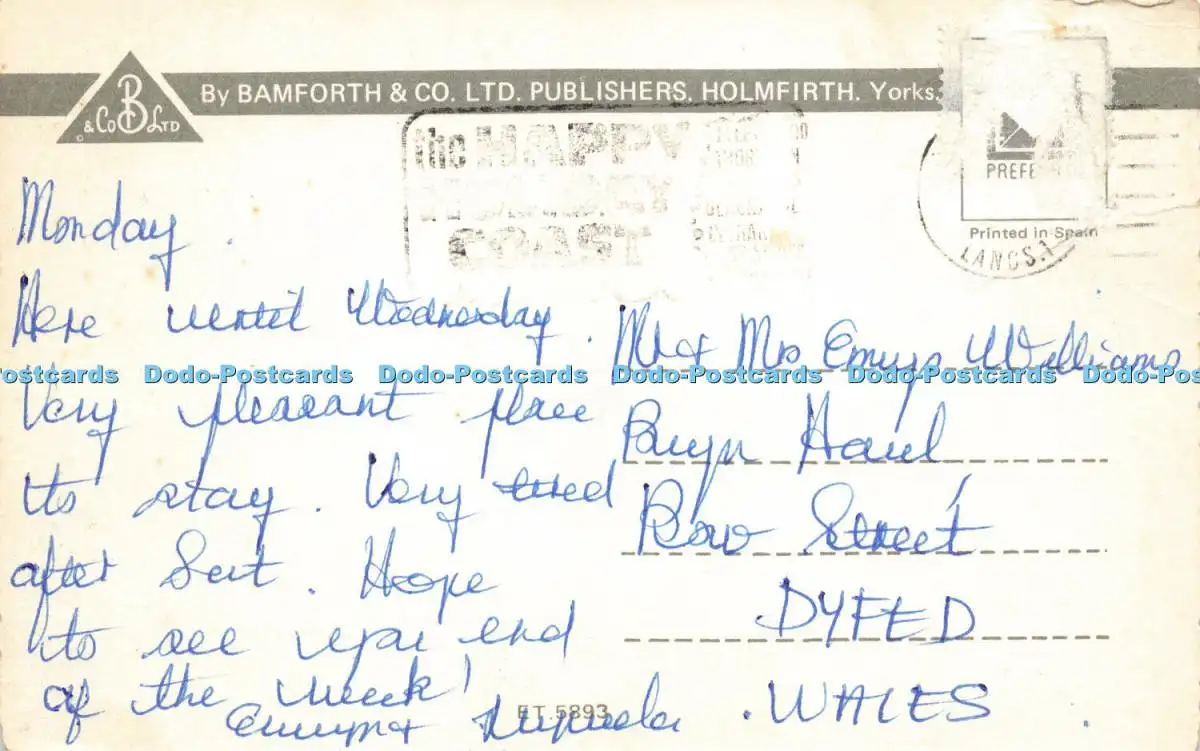 By BAMFORTH & CO. LTD. PUBLISHERS. HOLMFIRTH. Yorks.
B
& Co LTD
the HAPPY
COAST
PREFE
Printed in Spain
LANCS.
Monday.
Here until Wednesday.
Very pleasant place
to stay. Very tired
after Sat. Hope
to see you end
of the week!
Mr & Mrs Emyr Williams
Bryn Hawl,
Row Street
DYFED
WALES
ET.5893
Dodo-Postcards Dodo-Postcards Dodo-Postcards Dodo-Postcards Dodo-Postcards